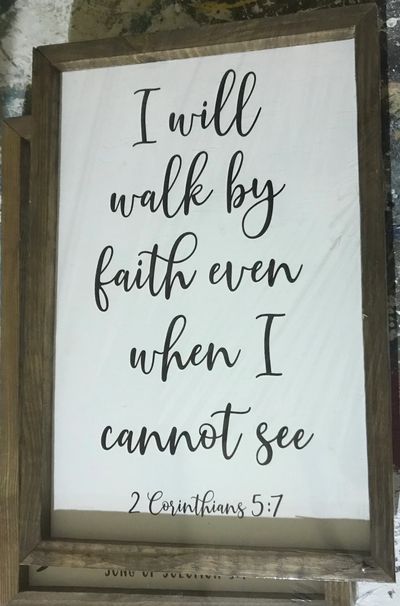 I will
walk by
faith even
when I
cannot see
2 Corinthians 5:7
SONG OF SOLOMON